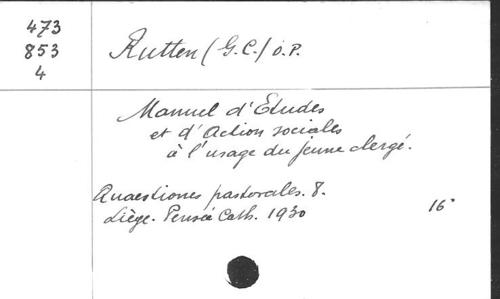 473
853
4
Rutten (G.C.) O.P.
Manuel d'Etudes
et d'Action sociales
à l'usage du jeune clergé.
Quaestiones pastorales. 8.
Liège. Pensée Cath. 1930
16°